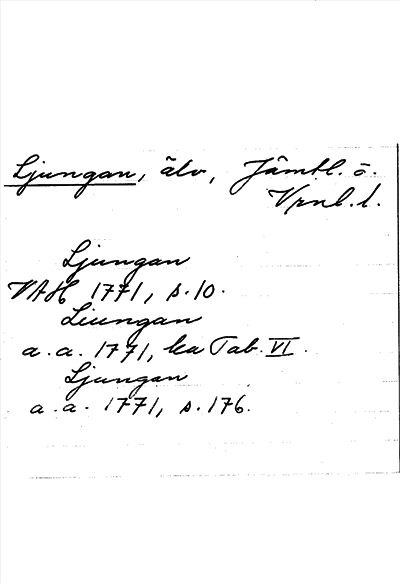 Ljungan, älv, Jämtl. o.
Vrnl. l.
Ljungan
VAH 1771, s. 10.
Liungan
a. a. 1771, Tab. VI.
Ljungan
a. a. 1771, s. 176.